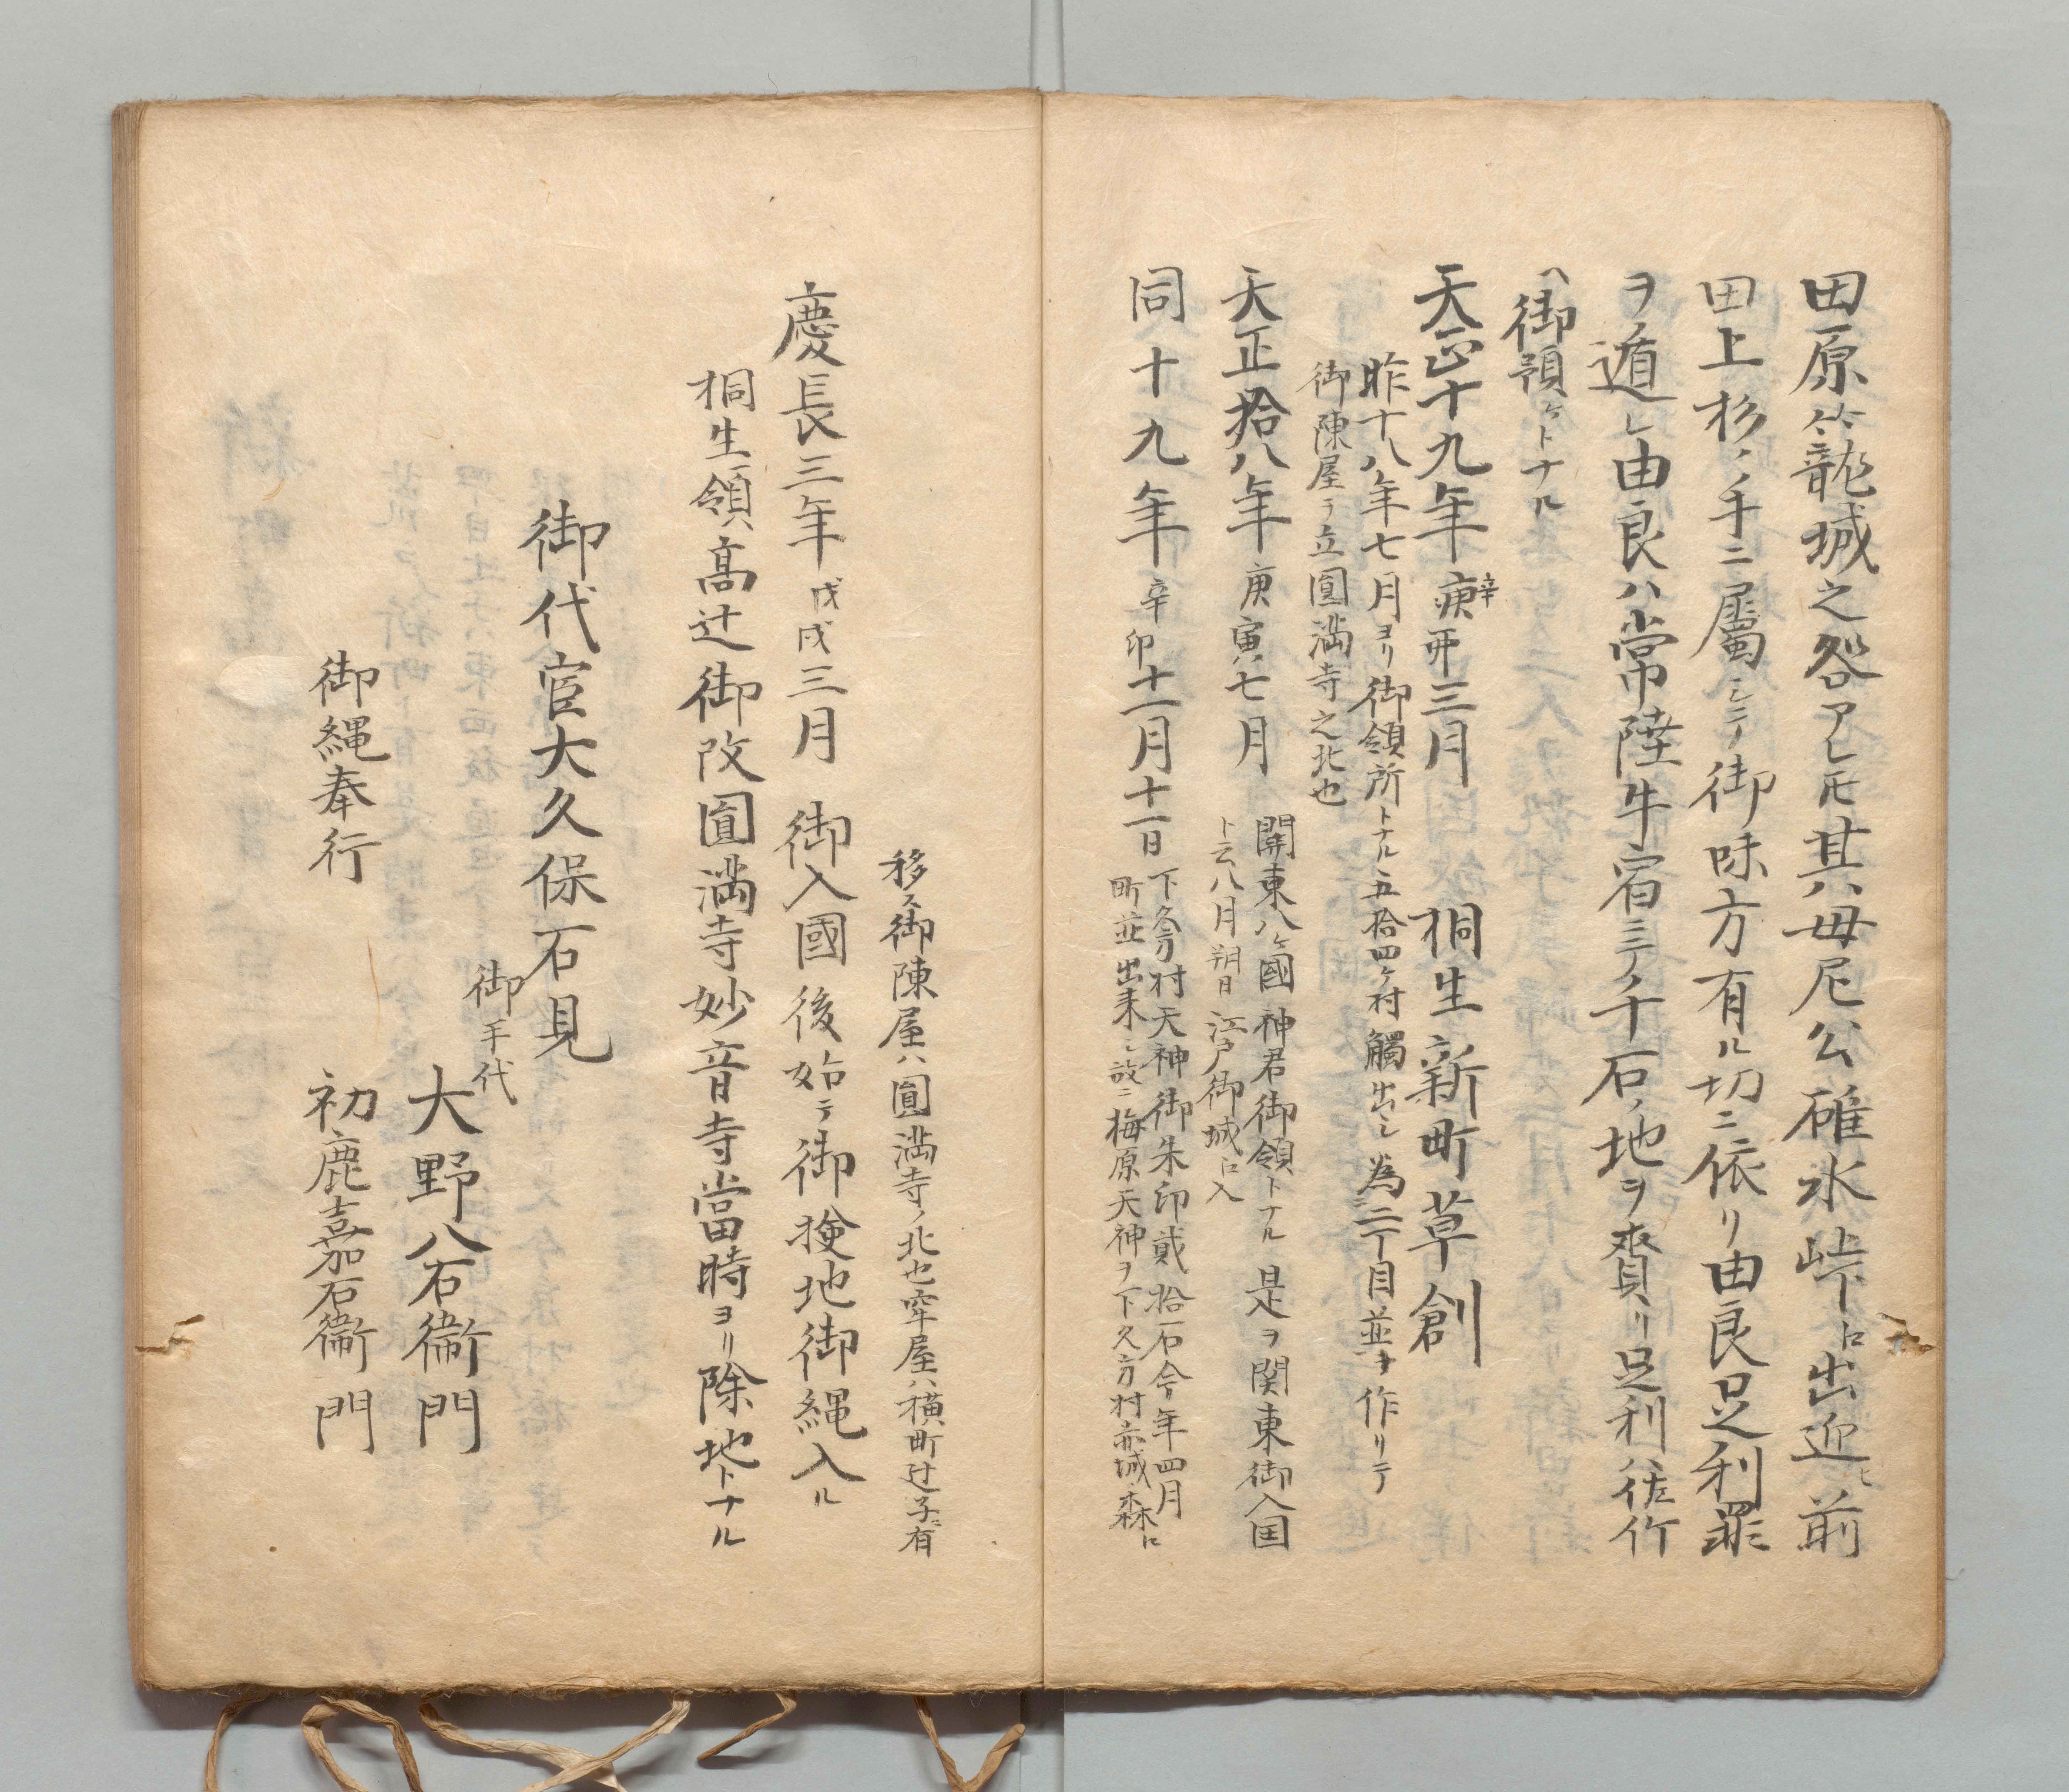 田原ヘ籠城之咎アレ𪜈其ハ母尼公碓氷峠ヘ出迎ヒ前
田上杉ノ手ニ屬シテ御味方有ル切ニ依リ由良足利罪
ヲ遁レ由良ハ常陸牛宿三ノ千石ノ地ヲ賚リ足利ハ佐竹
ヘ御預ケトナル
天正十九年庚辛卯三月 桐生新町草創
昨十八年七月ヨリ御領所トナル五拾四ケ村觸出シ為二丁目並ヲ作リテ
御陳屋ヲ立圓滿寺之北也
天正拾八年庚寅七月 関東八ケ國神君御領トナル是ヲ関東御入国
ト云八月朔日江戸御城ヘ入
同十九年辛卯十一月十一日 下久方村天神御朱印貳拾石今年四月
町並出来シ故ニ梅原天神ヲ下久方村赤城森ヘ
移ス御陳屋ハ圓滿寺ノ北也牢屋ハ横町辻子ニ有
慶長三年戊戌三月 御入國後始テ御撿地御縄入ル
桐生領ハ髙辻御改圓滿寺妙音寺當時ヨリ除地トナル
御代官大久保石見
御手代
大野八右衞門
御縄奉行 初鹿嘉右衞門